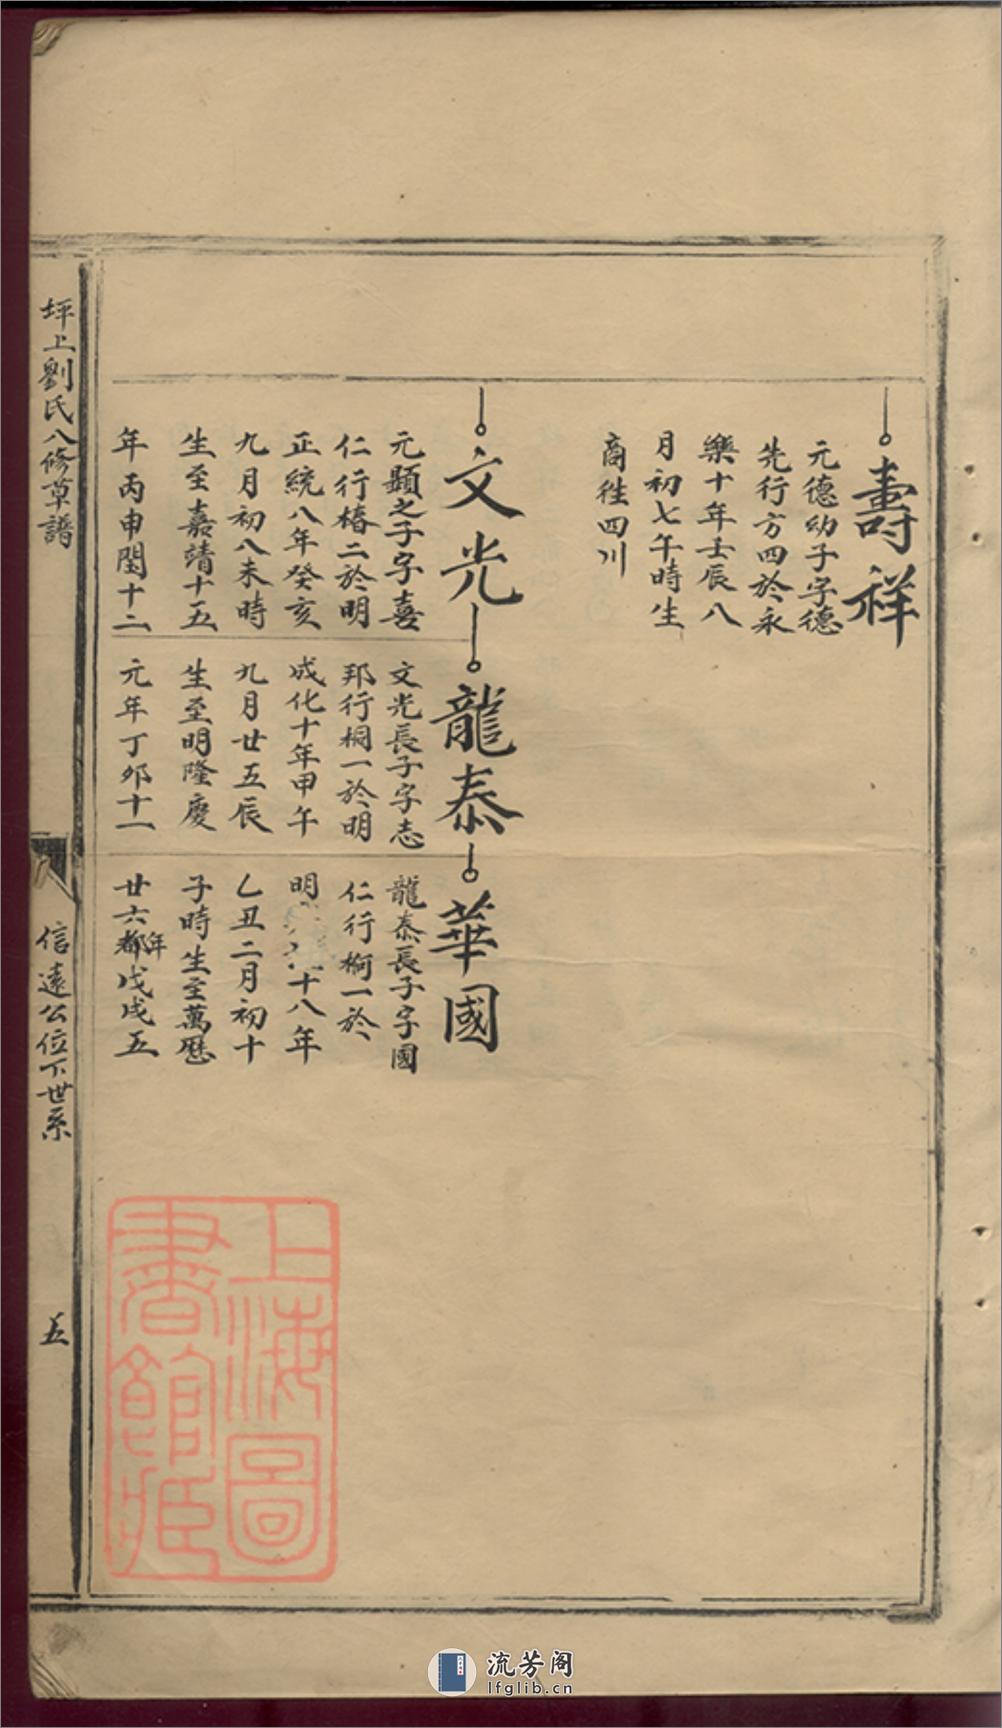 壽祥
元德幼子字德
先行方四於永
樂十年壬辰八
月初七午時生
商徃四川
文光
元顯之子字喜
仁行椿二於明
正統八年癸亥
九月初八未時
生至嘉靖十五
年丙申閏十二
龍泰
文光長子字志
邦行桐一於明
成化十年甲午
九月廿五辰
生至明隆慶
元年丁夘十一
華國
龍泰長子字國
仁行桐一於
明十八年
乙丑二月初十
子時生至萬厯
廿六年戊戌五
坪上劉氏八修草譜
信遠公位下世系
五
上海圖
書館藏
流芳阁
lfglib.cn